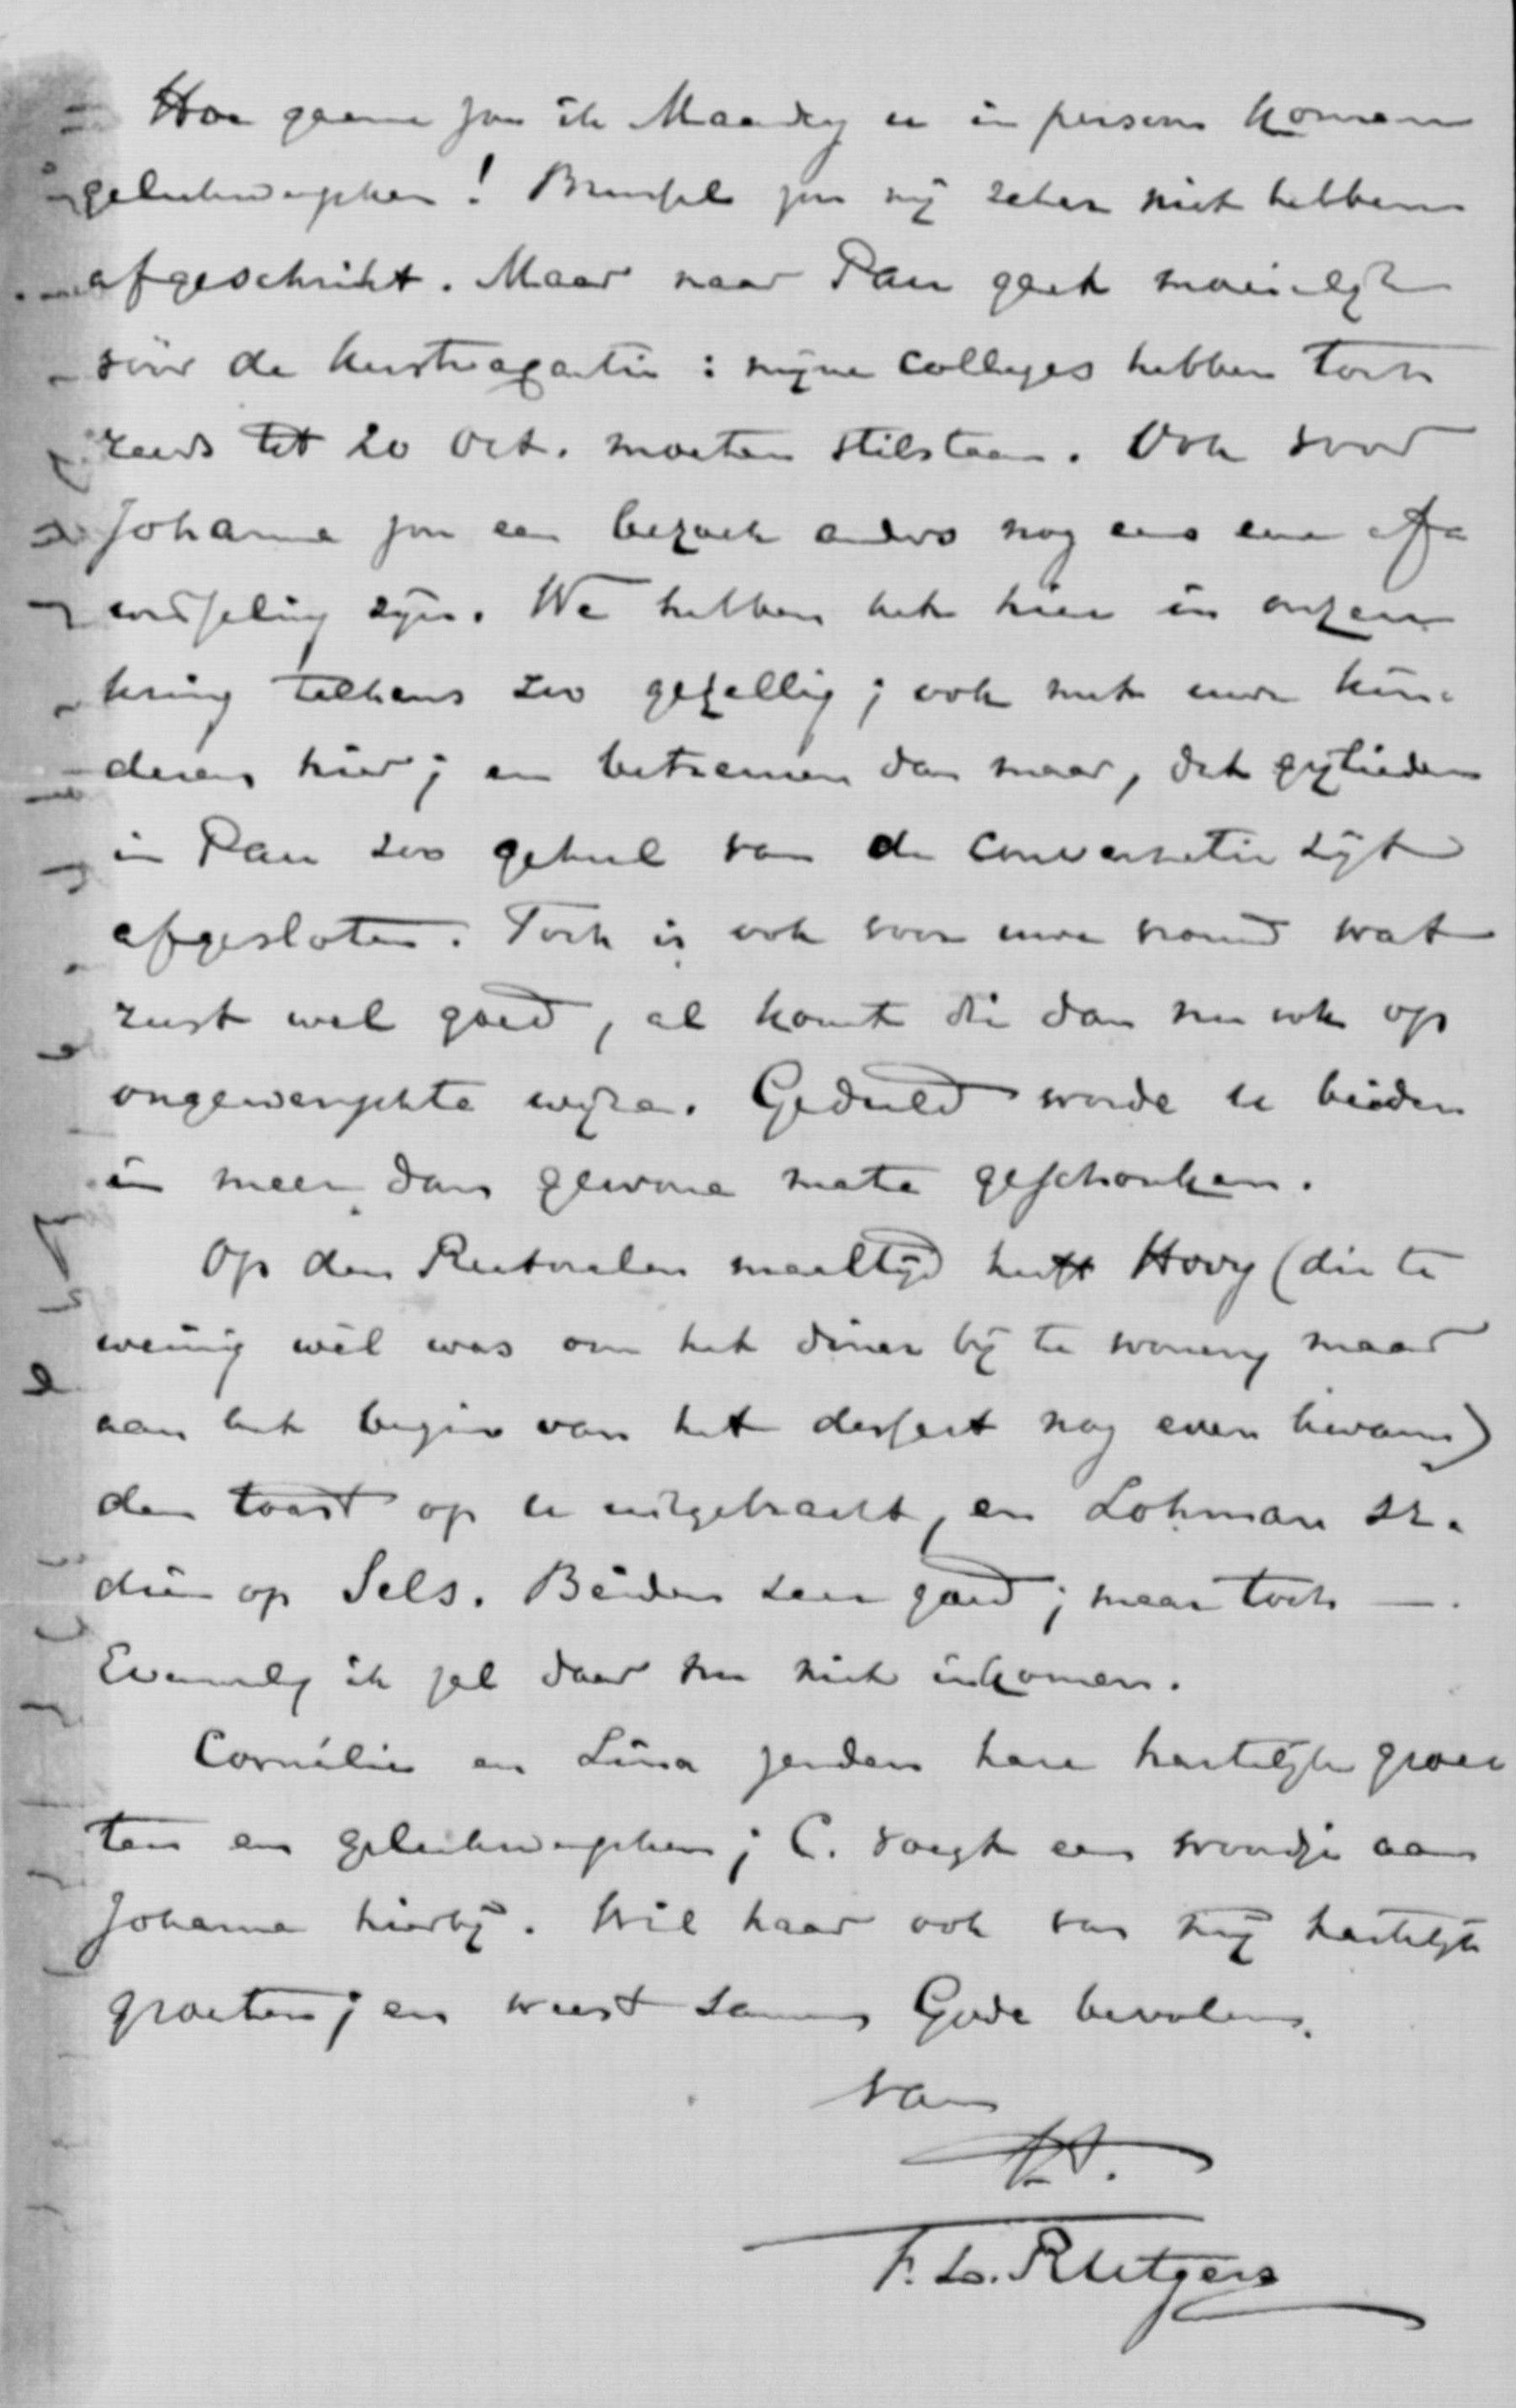 Hoe gaarne zou ik Maandag u in persoon komen
gelukwenschen! Brussel zou mij zeker niet hebben
afgeschrikt. Maar naar Pau gaat moeielijk
vóór de kerstvacantie: mijne colleges hebben toch
reeds tot 20 Oct. moeten stilstaan. Ook voor
Johanna zou een bezoek anders nog eens eene af-
wisseling zijn. We hebben het hier in onzen
kring telkens zoo gezellig; ook met uwe kin-
deren hier; en betreuren dan maar, dat gijlieden
in Pau zoo geheel van de conversatie zijt
afgesloten. Toch is ook voor uwe vrouw wat
rust wel goed, al komt die dan nu ook op
ongewenschte wijze. Geduld worde u beiden
in meer dan gewone mate geschonken.
Op den Rectoralen maaltijd heeft Hovy (die te
weinig wèl was om het diner bij te wonen, maar
aan het begin van het dessert nog even binnenkwam)
den toast op u uitgebracht, en Lohman Sr.
dien op Sels. Beiden zeer goed; maar toch —.
Evenwel, ik zal daar nu niet inkomen.
Cornélie en Lina zenden hare hartelijke groe-
ten en gelukwenschen; C. voegt een woordje aan
Johanna hierbij. Wil haar ook van mij hartelijk
groeten; en weest samen Gode bevolen.
van
F. L. Rutgers